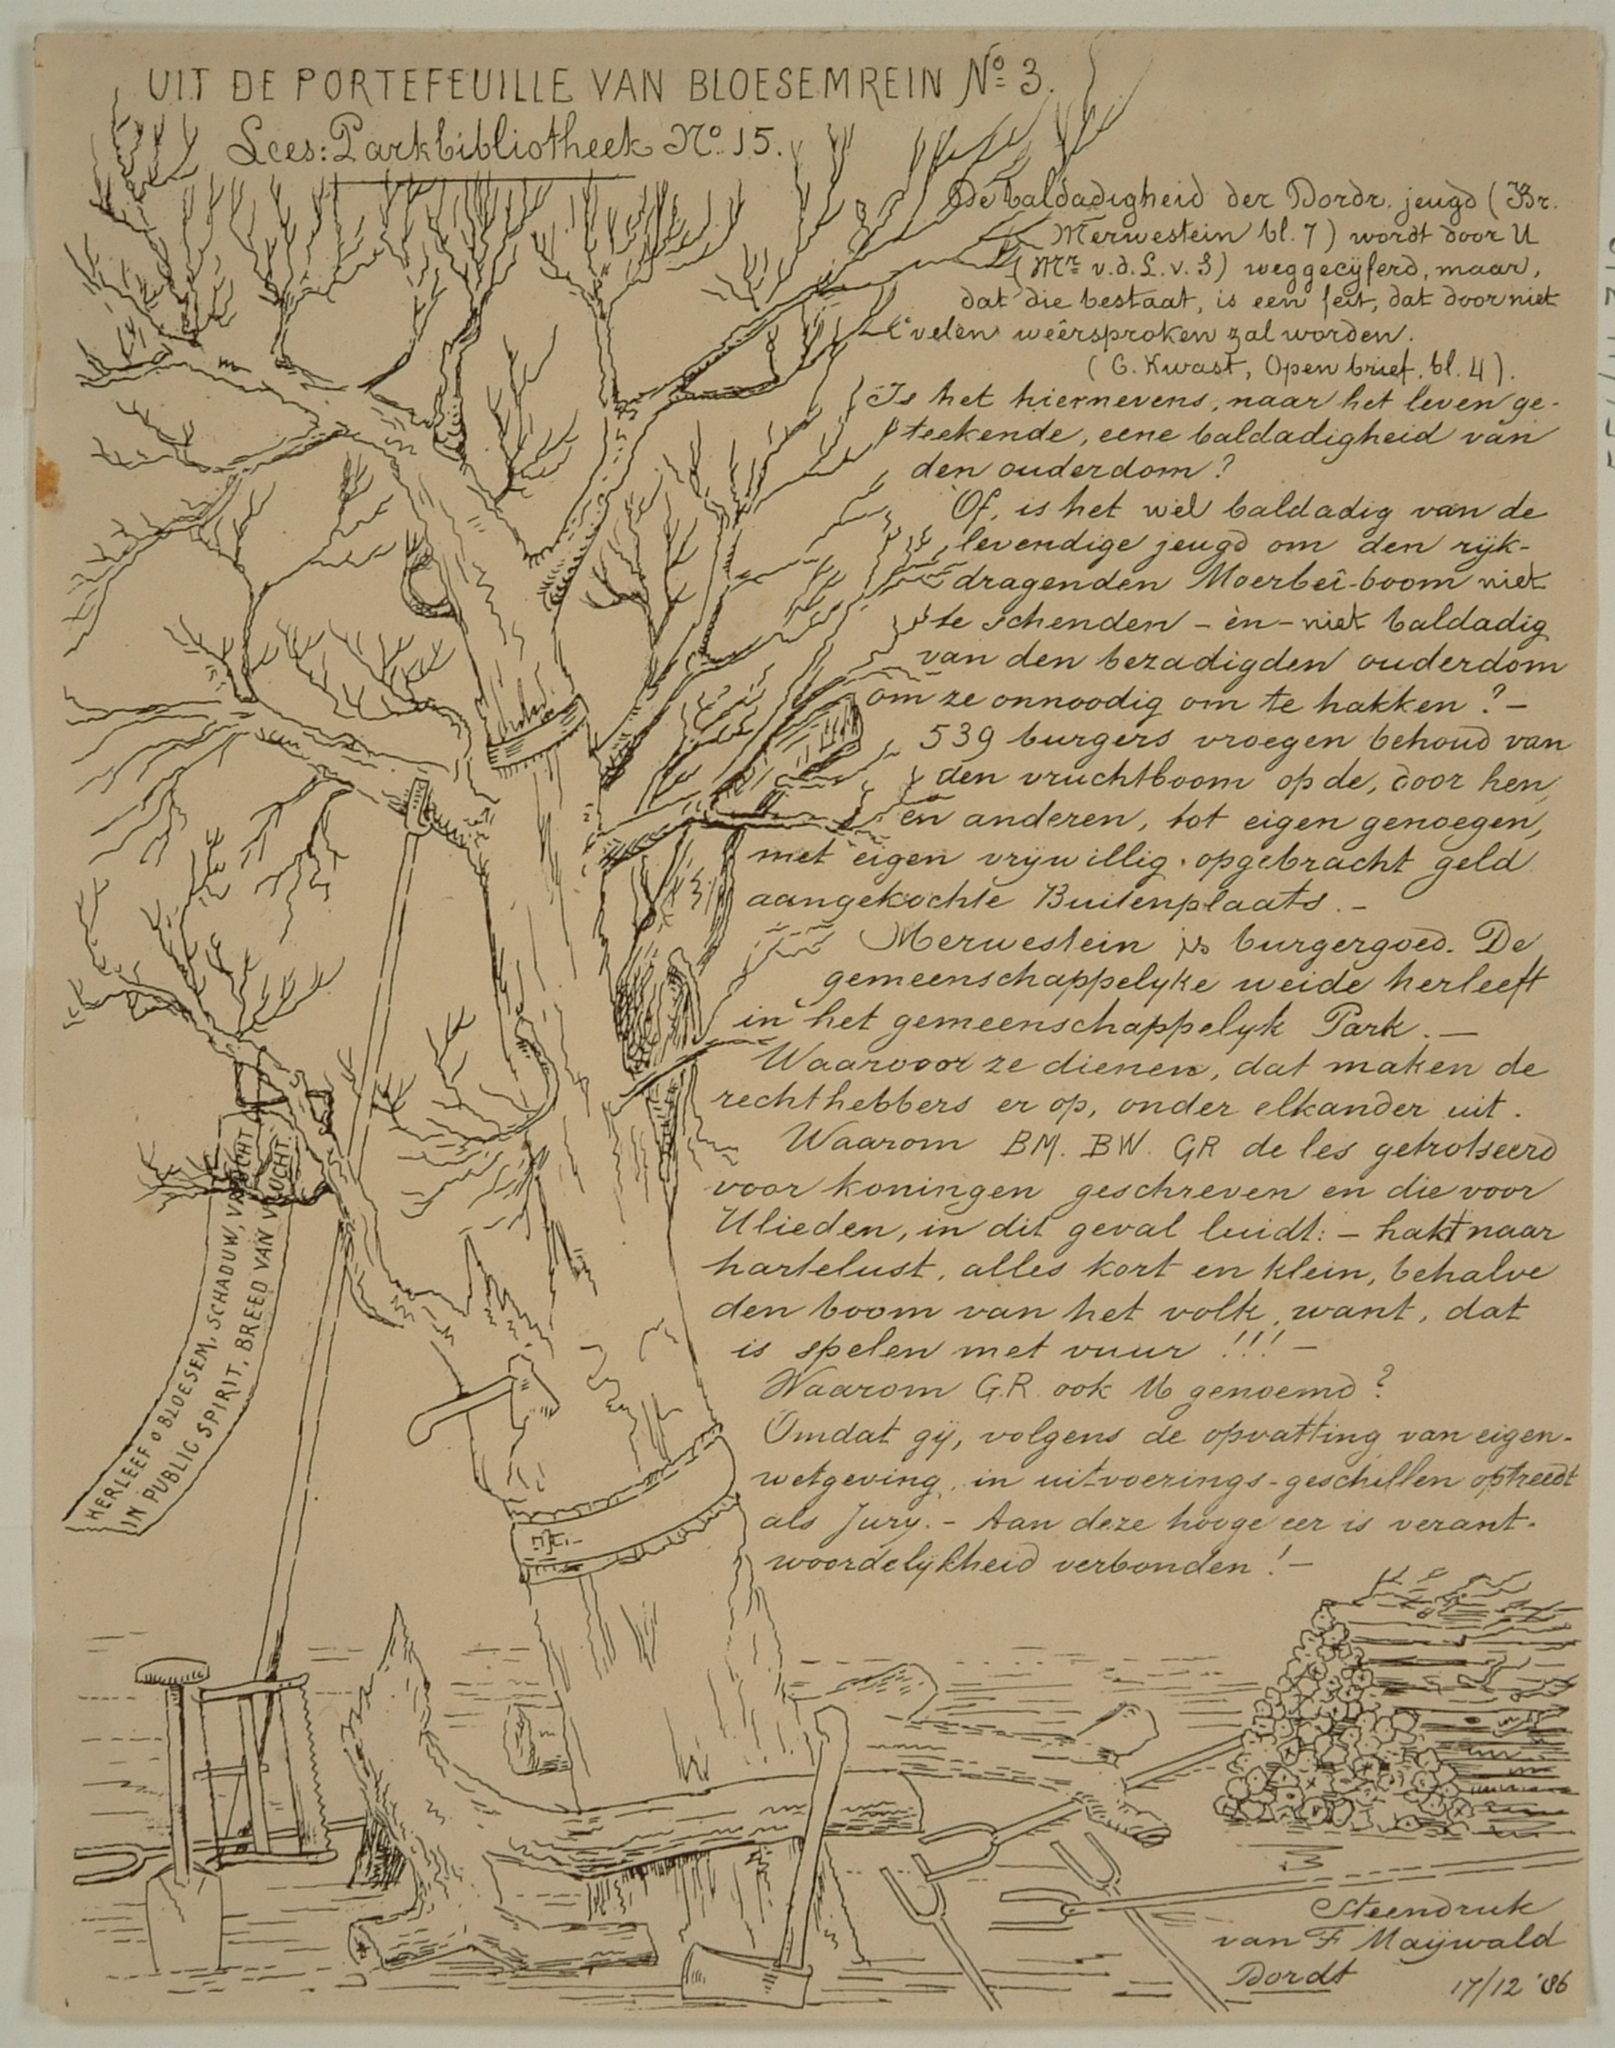 UIT DE PORTEFEUILLE VAN BLOESEMREIN No 3.
Lees: Parkbibliotheek No. 15.
De baldadigheid der Dordr. jeugd (Br.
Merwestein bl. 7) wordt door U
(Mr v.d. L. v. S) weggecijferd, maar,
dat die bestaat, is een feit, dat door niet
velen weêrsproken zal worden.
(C. Kwast, Open brief, bl. 4).
Is het hiernevens, naar het leven ge-
teekende, eene baldadigheid van
den ouderdom?
Of, is het wel baldadig van de
levendige jeugd om den rijk-
dragenden Moerbeî-boom niet
te schenden - èn - niet baldadig
van den bezadigden ouderdom
om ze onnoodig om te hakken? -
539 burgers vroegen behoud van
den vruchtboom op de, door hen,
en anderen, tot eigen genoegen,
met eigen vrijwillig opgebracht geld
aangekochte Buitenplaats. -
Merwestein is burgergoed. De
gemeenschappelyke weide herleeft
in het gemeenschappelyk Park. -
Waarvoor ze dienen, dat maken de
rechthebbers er op, onder elkander uit.
Waarom BM. BW. GR de les getrotseerd
voor koningen geschreven en die voor
Ulieden, in dit geval luidt: - hakt naar
hartelust, alles kort en klein, behalve
den boom van het volk, want, dat
is spelen met vuur !!! -
Waarom G.R. ook U genoemd?
Omdat gij, volgens de opvatting van eigen-
wetgeving, in uitvoerings-geschillen optreedt
als Jury. - Aan deze hooge eer is verant-
woordelijkheid verbonden! -
HERLEEF o BLOESEM, SCHADUW, VRUCHT
IN PUBLIC SPIRIT, BREED VAN VLUCHT.
Steendruk
van F Maijwald
Dordt
17/12 '86